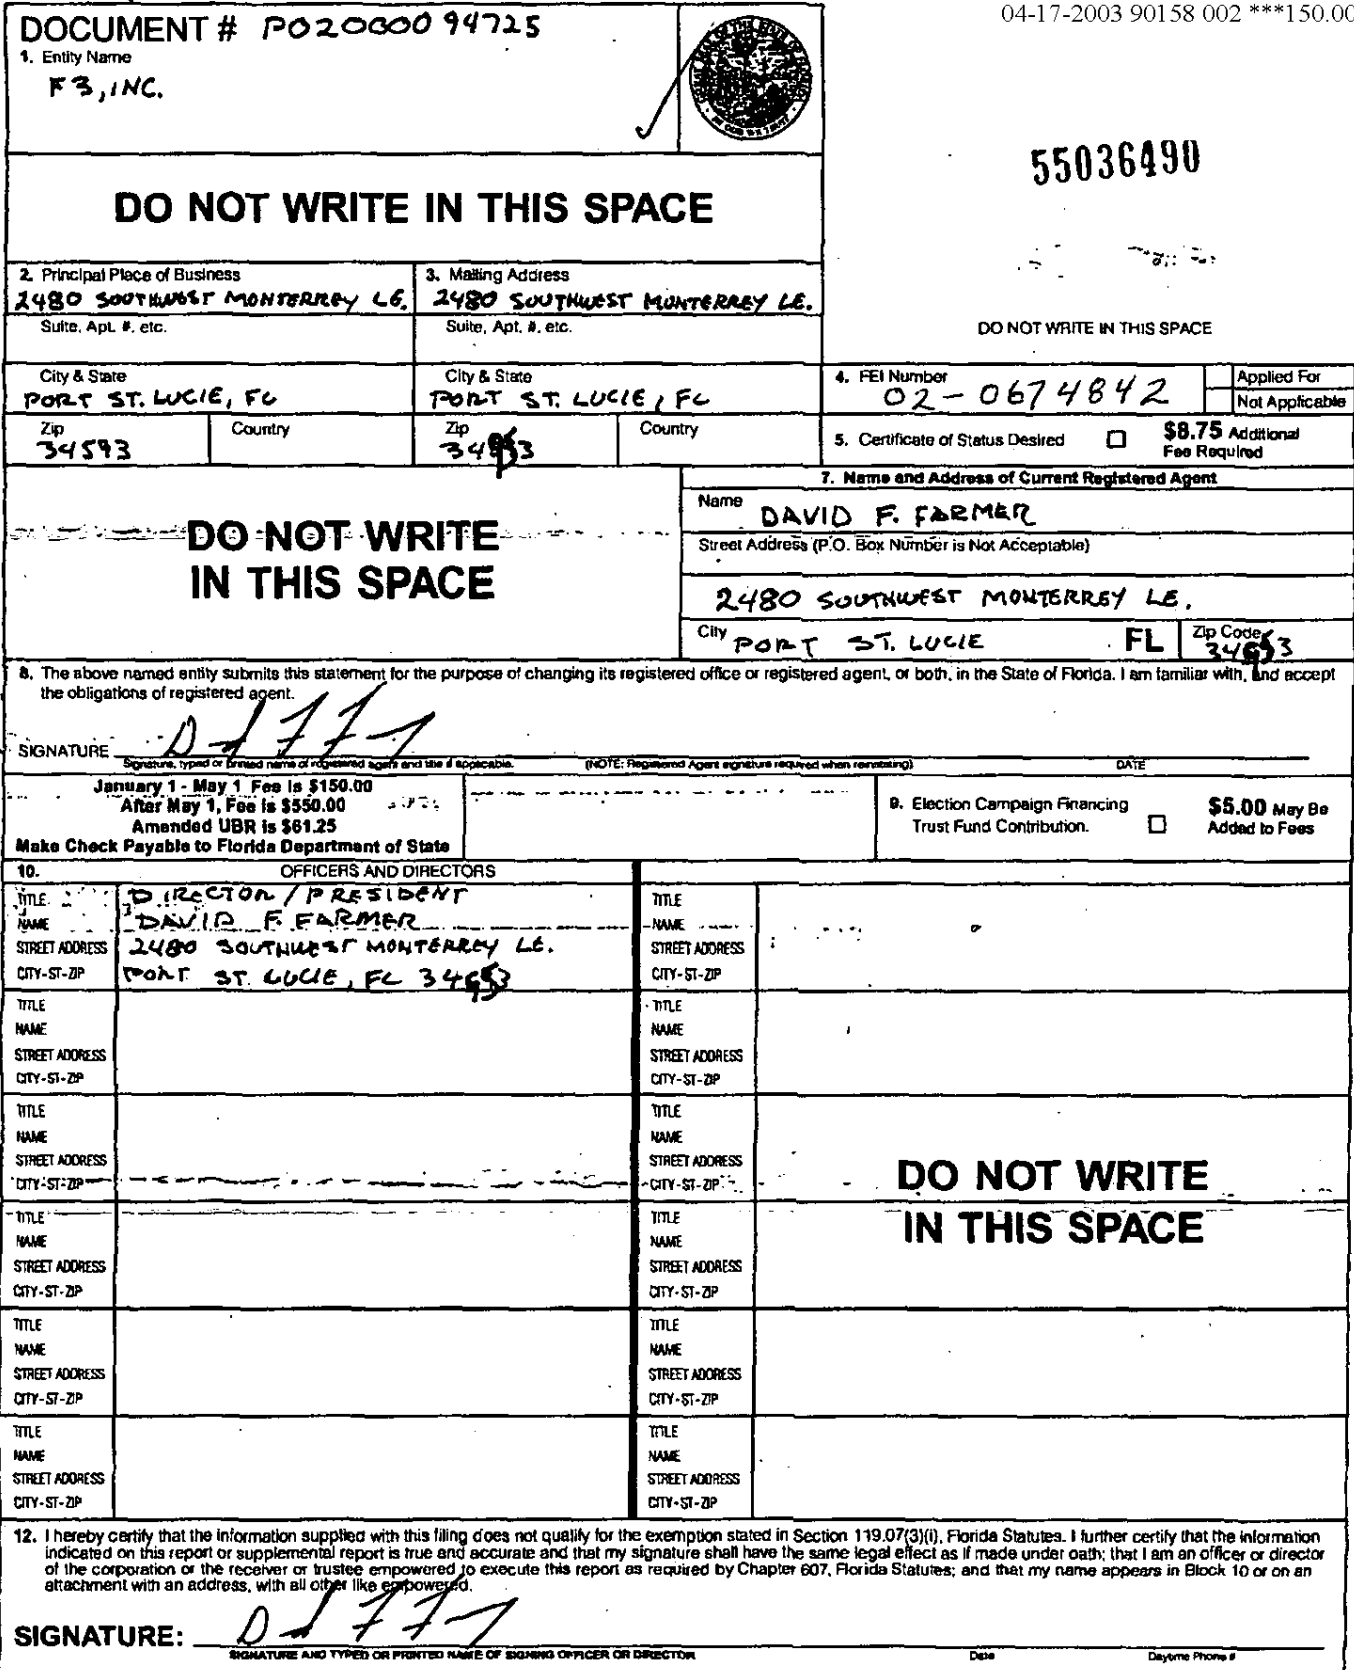 04-17-2003 90158 002 ***150.00
DOCUMENT # P02000094725
1. Entity Name
F3, INC.
55036490
DO NOT WRITE IN THIS SPACE
2. Principal Place of Business
2480 SOUTHWEST MONTERREY LE.
3. Mailing Address
2480 SOUTHWEST MONTERREY LE.
Suite, Apt. #, etc.
Suite, Apt. #, etc.
DO NOT WRITE IN THIS SPACE
City & State
PORT ST. LUCIE, FL
City & State
PORT ST. LUCIE, FL
4. FEI Number
02-0674842
Applied For
Not Applicable
Zip
34593
Country
Zip
Country
5. Certificate of Status Desired
$8.75 Additional
Fee Required
7. Name and Address of Current Registered Agent
Name DAVID F. FARMER
Street Address (P.O. Box Number is Not Acceptable)
2480 SOUTHWEST MONTERREY LE.
City PORT ST. LUCIE FL Zip Code
DO NOT WRITE
IN THIS SPACE
8. The above named entity submits this statement for the purpose of changing its registered office or registered agent, or both, in the State of Florida. I am familiar with, and accept
the obligations of registered agent.
SIGNATURE
Signature, typed or printed name of registered agent and title if applicable. (NOTE: Registered Agent signature required when reinstating) DATE
January 1 - May 1 Fee is $150.00
After May 1, Fee is $550.00
Amended UBR is $61.25
Make Check Payable to Florida Department of State
9. Election Campaign Financing
Trust Fund Contribution.
$5.00 May Be
Added to Fees
10. OFFICERS AND DIRECTORS
TITLE DIRECTOR / PRESIDENT
NAME DAVID F. FARMER
STREET ADDRESS 2480 SOUTHWEST MONTERREY LE.
CITY-ST-ZIP PORT ST. LUCIE, FL
TITLE
NAME
STREET ADDRESS
CITY-ST-ZIP
TITLE
NAME
STREET ADDRESS
CITY-ST-ZIP
TITLE
NAME
STREET ADDRESS
CITY-ST-ZIP
TITLE
NAME
STREET ADDRESS
CITY-ST-ZIP
TITLE
NAME
STREET ADDRESS
CITY-ST-ZIP
TITLE
NAME
STREET ADDRESS
CITY-ST-ZIP
TITLE
NAME
STREET ADDRESS
CITY-ST-ZIP
TITLE
NAME
STREET ADDRESS
CITY-ST-ZIP
TITLE
NAME
STREET ADDRESS
CITY-ST-ZIP
TITLE
NAME
STREET ADDRESS
CITY-ST-ZIP
TITLE
NAME
STREET ADDRESS
CITY-ST-ZIP
DO NOT WRITE
IN THIS SPACE
12. I hereby certify that the information supplied with this filing does not qualify for the exemption stated in Section 119.07(3)(i), Florida Statutes. I further certify that the information
indicated on this report or supplemental report is true and accurate and that my signature shall have the same legal effect as if made under oath; that I am an officer or director
of the corporation or the receiver or trustee empowered to execute this report as required by Chapter 607, Florida Statutes; and that my name appears in Block 10 or on an
attachment with an address, with all other like empowered.
SIGNATURE:
SIGNATURE AND TYPED OR PRINTED NAME OF SIGNING OFFICER OR DIRECTOR Date Daytime Phone #